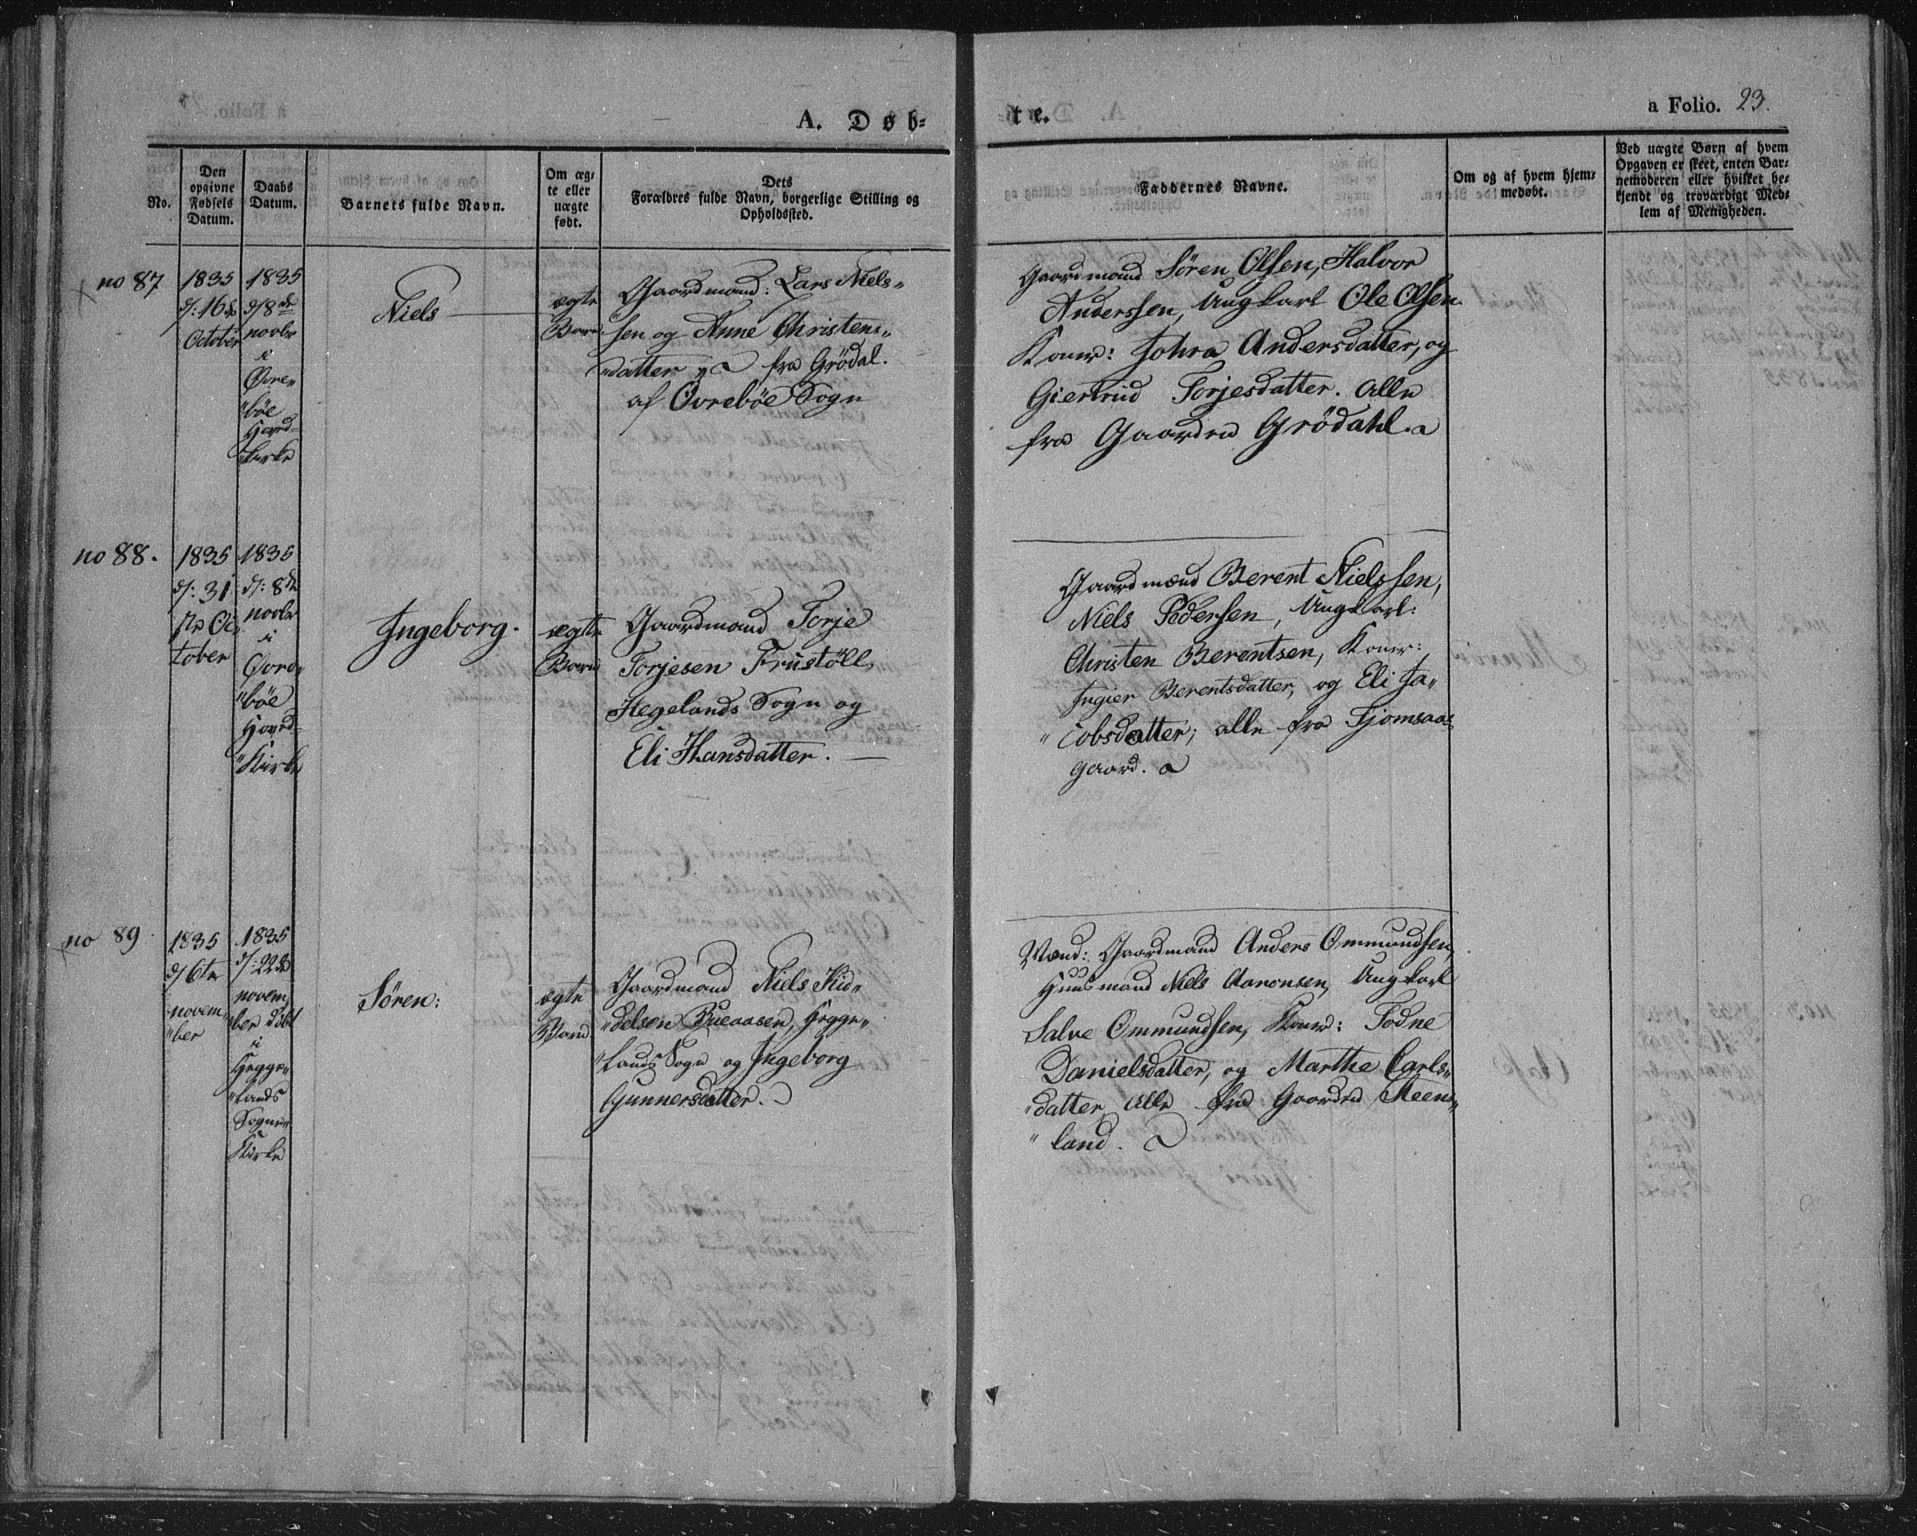 A. Døb-
te.
a Folio. 23.
No.
Den
opgivne
Fødsels
Datum.
Daabs
Datum.
Barnets fulde Navn.
Om æg-
te eller
uægte
født.
Dets
Forældres fulde Navn, borgerlige Stilling og
Opholdssted.
Faddernes Navne.
Om og af hvem hjem-
medøbt.
Ved uægte Børn af hvem
Opgaven er skeet, enten Bar-
nemoderen eller hvilket be-
kjendt og troværdigt Med-
lem af Menigheden.
no 87
1835
d/: 16de
October
1835
d/ 8de
novbr
i
Øvre„
„bøe
Hoved-
„kirke
Niels
ægte
Barn
Gaardmand: Lars Niels„
sen og Anne Christens„
„datter fra Grödal.
af Övrebøe Sogn
Gaardmænd Sören Olsen, Halvor
Anderssen, Ungkarl Ole Olsen
Koner: Johra Andersdatter, og
Giertrud Torjesdatter. alle
fra Gaarden Grödahl.
no 88.
1835
d/: 31
te Oc„
tober
1835
d/: 8de
novbr
i
Øvre„
„bøe
Hoved-
„Kirke
Ingeborg.
ægte
Barn
Gaardmand Torje
Torjesen Frustöll,
Hegelands Sogn og
Eli Hansdatter.
Gaardmænd Berent Nielssen,
Niels Pedersen, Ungkarl:
Christen Berentsen, Koner:
Ingier Berentsdatter, og Eli Ja„
„cobsdatter; alle fra Fjomsaas
gaard.
no 89.
1835
d/ 6te
novem„
„ber
1835
d/: 22de
novem„
„ber døbt
i
Hegge„
„lands
Sogne„
Kirke
Sören:
ægte
Barn
Gaardmand Niels Kid„
„delsen Bueaasen, Hegge„
„lands Sogn og Ingeborg
Gunnersdatter.
Mænd: Gaardmand Anders Ommundsen,
Huusmand Niels Aanonsen, Ungkarl
Salve Ommundsen, Koner: Todne
Danielsdatter, og Marthe Carls„
„datter, alle fra Gaarden Steens„
„land.